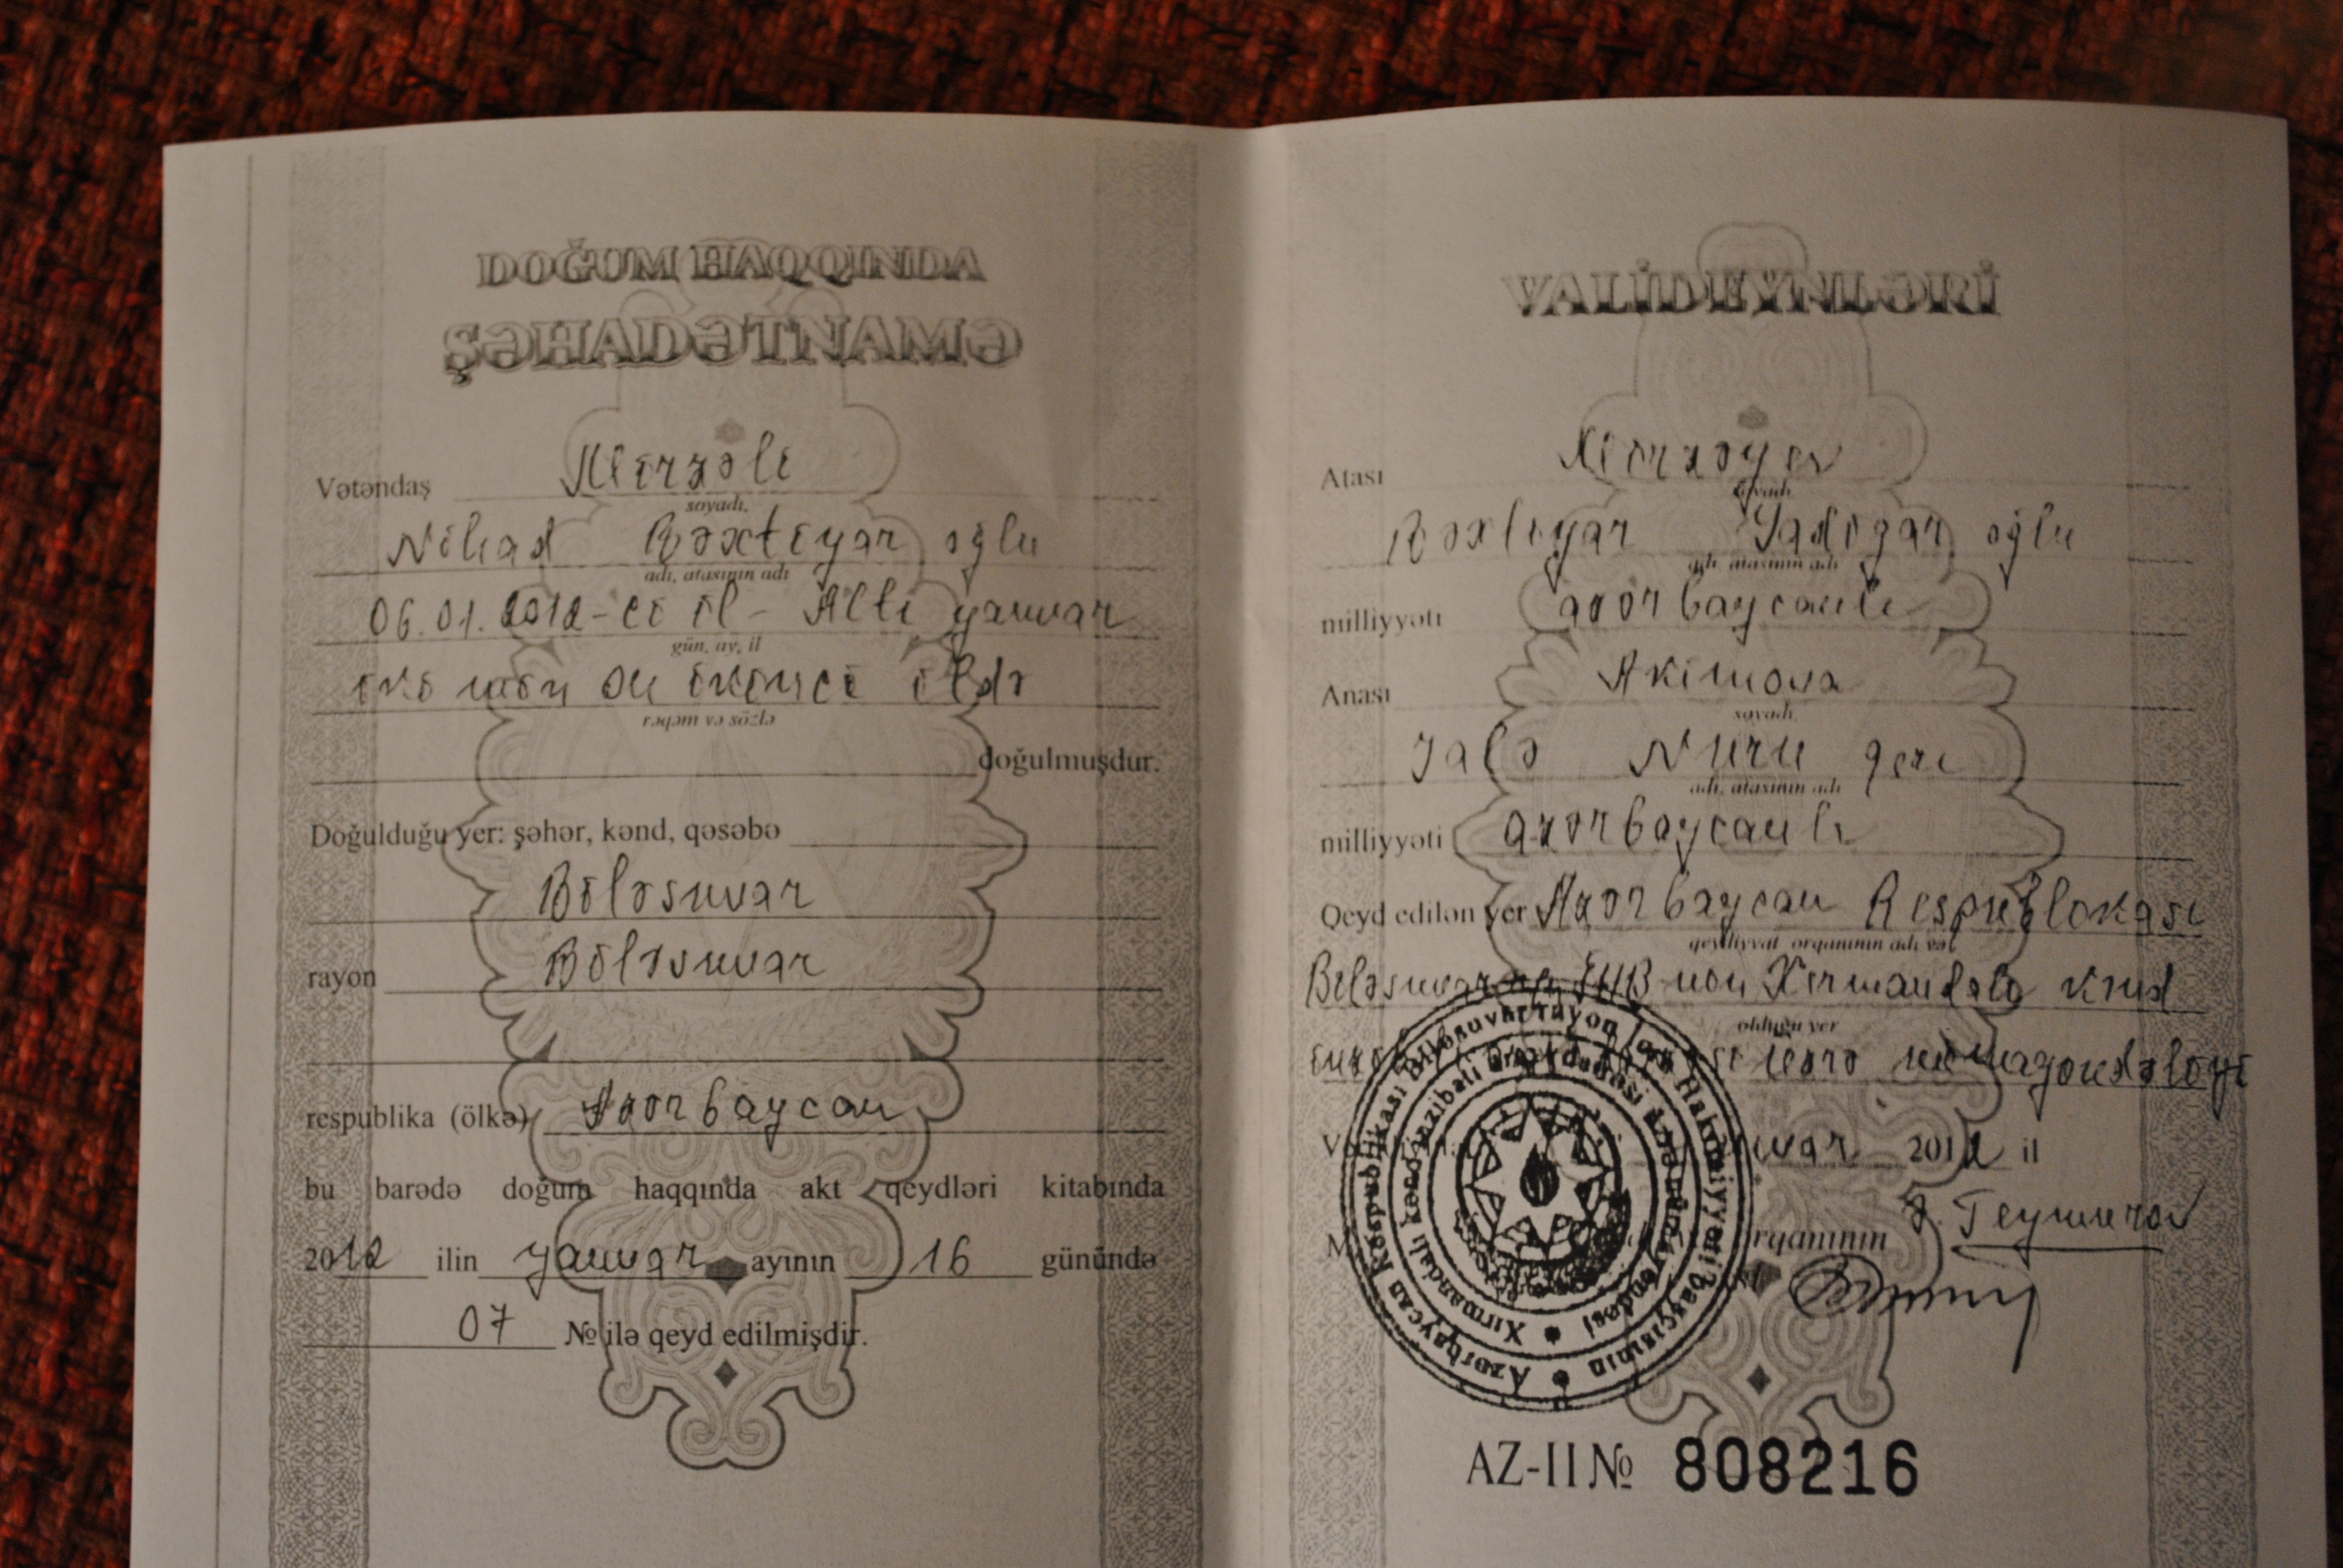 DOĞUM HAQQINDA
ŞƏHADƏTNAMƏ
Vətəndaş Mirzəli
soyadı,
Nihad Bəxtiyar oğlu
adı, atasının adı
06.01.2012-ci il - Altı yanvar
gün, ay, il
iki min on ikinci ildə
rəqəm və sözlə
doğulmuşdur.
Doğulduğu yer: şəhər, kənd, qəsəbə
Biləsuvar
rayon Biləsuvar
respublika (ölkə) Azərbaycan
bu barədə doğum haqqında akt qeydləri kitabında
2012 ilin yanvar ayının 16 günündə
07 № ilə qeyd edilmişdir.
VALİDEYNLƏRİ
Atası Mirzəyev
soyadı
Bəxtiyar Yadigar oğlu
adı, atasının adı
milliyyəti azərbaycanlı
Anası Akimova
soyadı
Jalə Nuru qızı
adı, atasının adı
milliyyəti azərbaycanlı
Qeyd edilən yer Azərbaycan Respublikası
qeydiyyat orqanının adı və
Biləsuvar İHB-nın Xırmandalı kənd
olduğu yer
üzrə nümayəndəliyi
yanvar 2012 il
orqanının Ə. Teymurov
Azərbaycan Respublikası Biləsuvar rayon İcra Hakimiyyəti başçısının
Xırmandalı kənd inzibati ərazi dairəsi üzrə nümayəndəsi
AZ-II № 808216